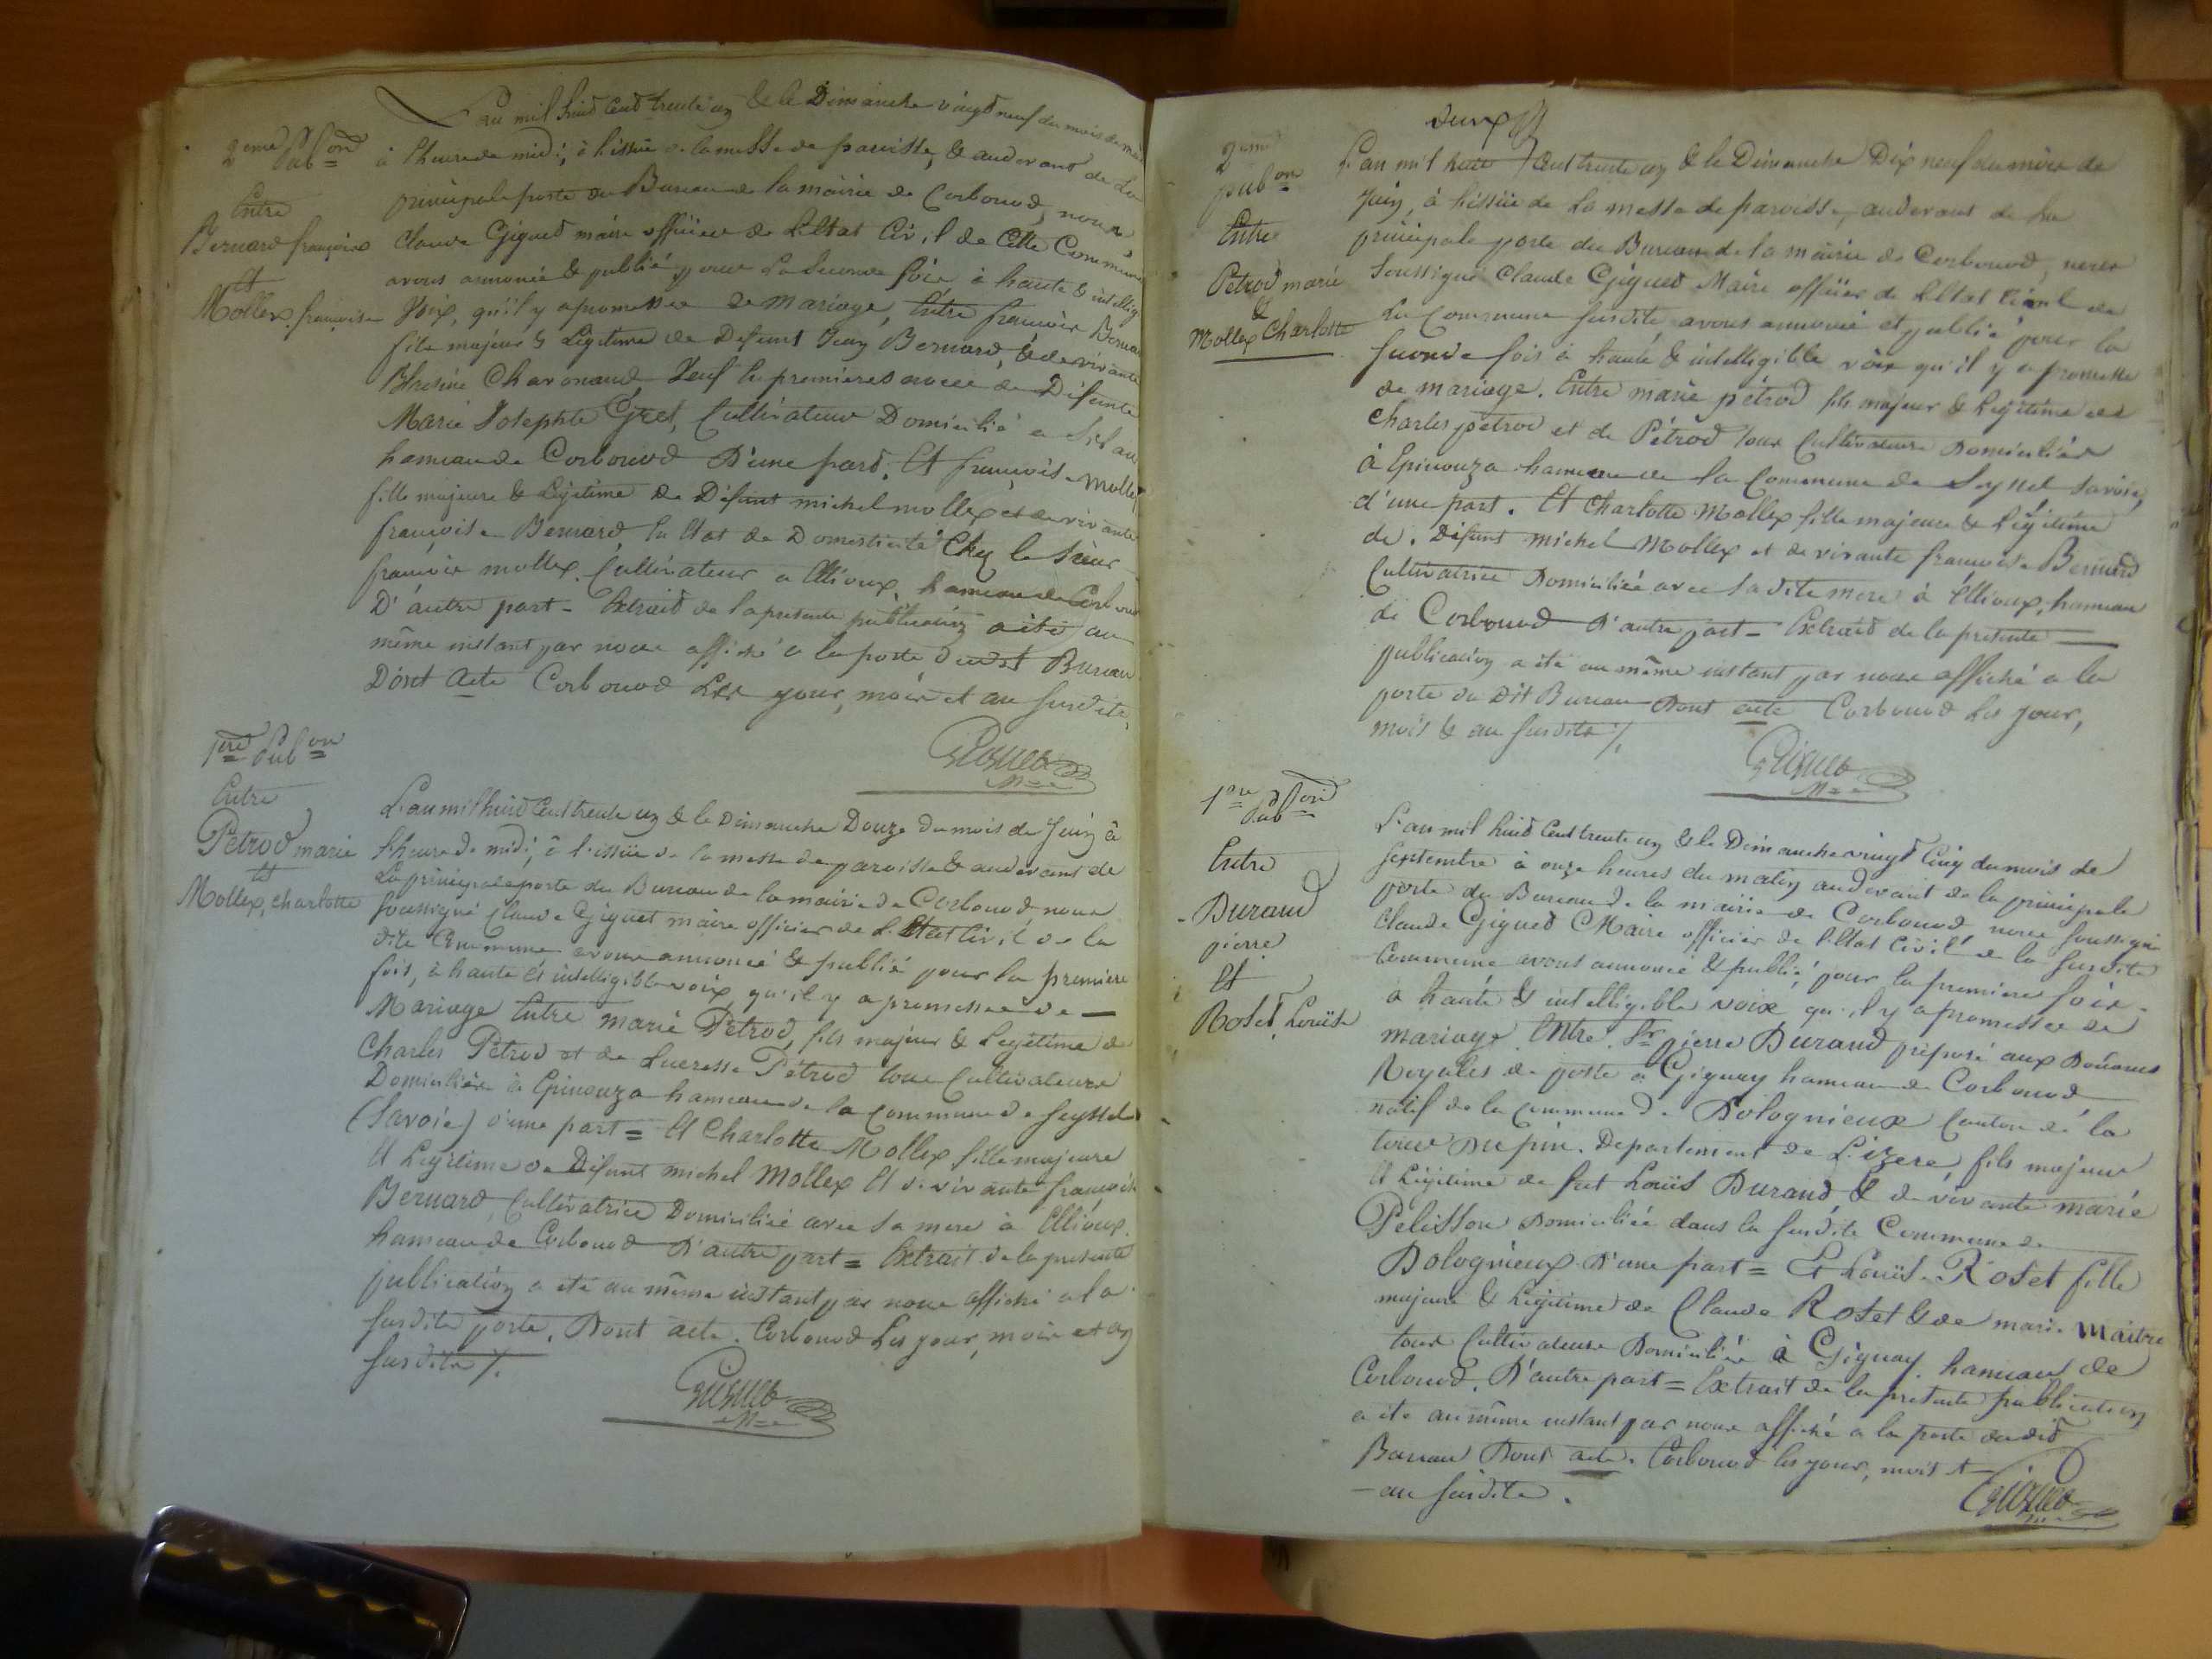 2eme Pubon
Entre
Bernard françois
et
Mollex françoise
L'an mil huit Cent trente un & le Dimanche vingt neuf du mois de mai
à l'heure de midi, à l'issüe de la messe de paroisse, & audevant de La
principale porte du Bureau de la mairie de Corbonod, nous
Claude Gignet maire officier de L'Etat Civil de Cette Commune
avons annoncé & publié pour La Seconde fois à haute & intellig
Voix, qu'il y a promesse de Mariage, Entre françois Bernard
fils majeur & Légitime de Defunt Jean Bernard, & de vivante
Charonaud, Veuf En premieres noces de Défunte
Marie Josephte Gret, Cultivateur Domicilié a Sil au
hameau de Corbonod D'une part, Et françoise Mollex
fille majeure & Légitime de Défunt michel mollex et de vivante
françoise Bernard, En Etat de Domesticité Chez le Sieur
françois mollex Cultivateur a Ettioux, hameau de Corbonod
D'autre part - Extrait de la presente publication a été au
même instant par nous affiché a la porte dudit Bureau
Dont Acte Corbonod Les jour, mois et an susdits,
Gignet
Mre
1ere Pubon
Entre
Pétrod marie
et
Mollex, charlotte
L'an mil huit Cent trente un & le Dimanche Douze du mois de Juin à
l'heure de midi, à l'issüe de la messe de paroisse & audevant de
La principale porte du Bureau de la mairie de Corbonod, nous
soussigné Claude Gignet maire officier de L'Etat Civil de la
dite Commune avons annoncé & publié pour la premiere
fois, à haute & intelligible voix, qu'il y a promesse de
Mariage Entre marie Pétrod, fils majeur & Legitime de
Charles Pétrod et de Lucresse Pétrod tous Cultivateurs
Domiciliés à Epinouza hameau de la Commune de Seyssel
(Savoie) d'une part = Et Charlotte Mollex fille majeure
Et Legitime de Défunt michel Mollex Et de vivante françoise
Bernard, Cultivatrice Domiciliée avec sa mere à Ettioux,
hameau de Corbonod D'autre part = Extrait de la presente
publication a été au même instant par nous affiché a la
susdite porte, Dont acte. Corbonod Les jour, mois et an
susdits /.
Gignet
Mre
2eme
pubon
Entre
Pétrod marie
&
Mollex Charlotte
deux
L'an mil huit Cent trente un & le Dimanche Dix neuf du mois de
Juin, à l'issüe de La messe de paroisse, audevant de La
principale porte du Bureau de la mairie de Corbonod, nous
Soussigné Claude Gignet Maire officier de L'Etat Civil de
La Commune susdite avons annoncé et publié pour la
seconde fois à haute & intelligible voix qu'il y a promesse
de mariage. Entre marie pétrod fils majeur & Legitime de
Charles pétrod et de Pétrod tous Cultivateurs Domiciliés
à Epinouza hameau de la Commune de Seyssel Savoie,
d'une part. Et Charlotte Mollex fille majeure & Légitime
de Défunt michel Mollex et de vivante françoise Bernard
Cultivatrice Domiciliée avec sadite mere à Ettioux, hameau
de Corbonod D'autre part - Extrait de la presente
publication a été au même instant par nous affiché a la
porte du Dit Bureau Dont acte Corbonod Les jour,
mois & an susdits /.
Gignet
Mre
1ere Pubon
Entre
Durand
pierre
Et
Roset Louise
L'an mil huit Cent trente un & le Dimanche vingt Cinq du mois de
Septembre à onze heures du matin audevant de la principale
porte du Bureau de la mairie de Corbonod, nous soussigné
Claude Gignet Maire officier de l'Etat Civil de la susdite
Commune avons annoncé & publié, pour la premiere fois
à haute & intelligible voix qu'il y a promesse de
mariage Entre Sr pierre Durand préposé aux Douanes
Royales de poste à Gignay hameau de Corbonod,
natif de la Commune de Dolognieux Canton de la
tour Dupin. Departement de L'izere, fils majeur
Et Légitime de feut Louis Durand & de vivante marie
Pelisson Domiciliée dans la susdite Commune de
Dolognieux D'une part = Et Louise Roset fille
majeure & Légitime de Claude Roset & de marie Maitre
tous Cultivateurs Domiciliés à Gignay hameau de
Corbonod, D'autre part = Extrait de la presente publication
a été au même instant par nous affiché a la porte dudit
Bureau Dont acte. Corbonod les jour, mois &
an susdits.
Gignet
Mre